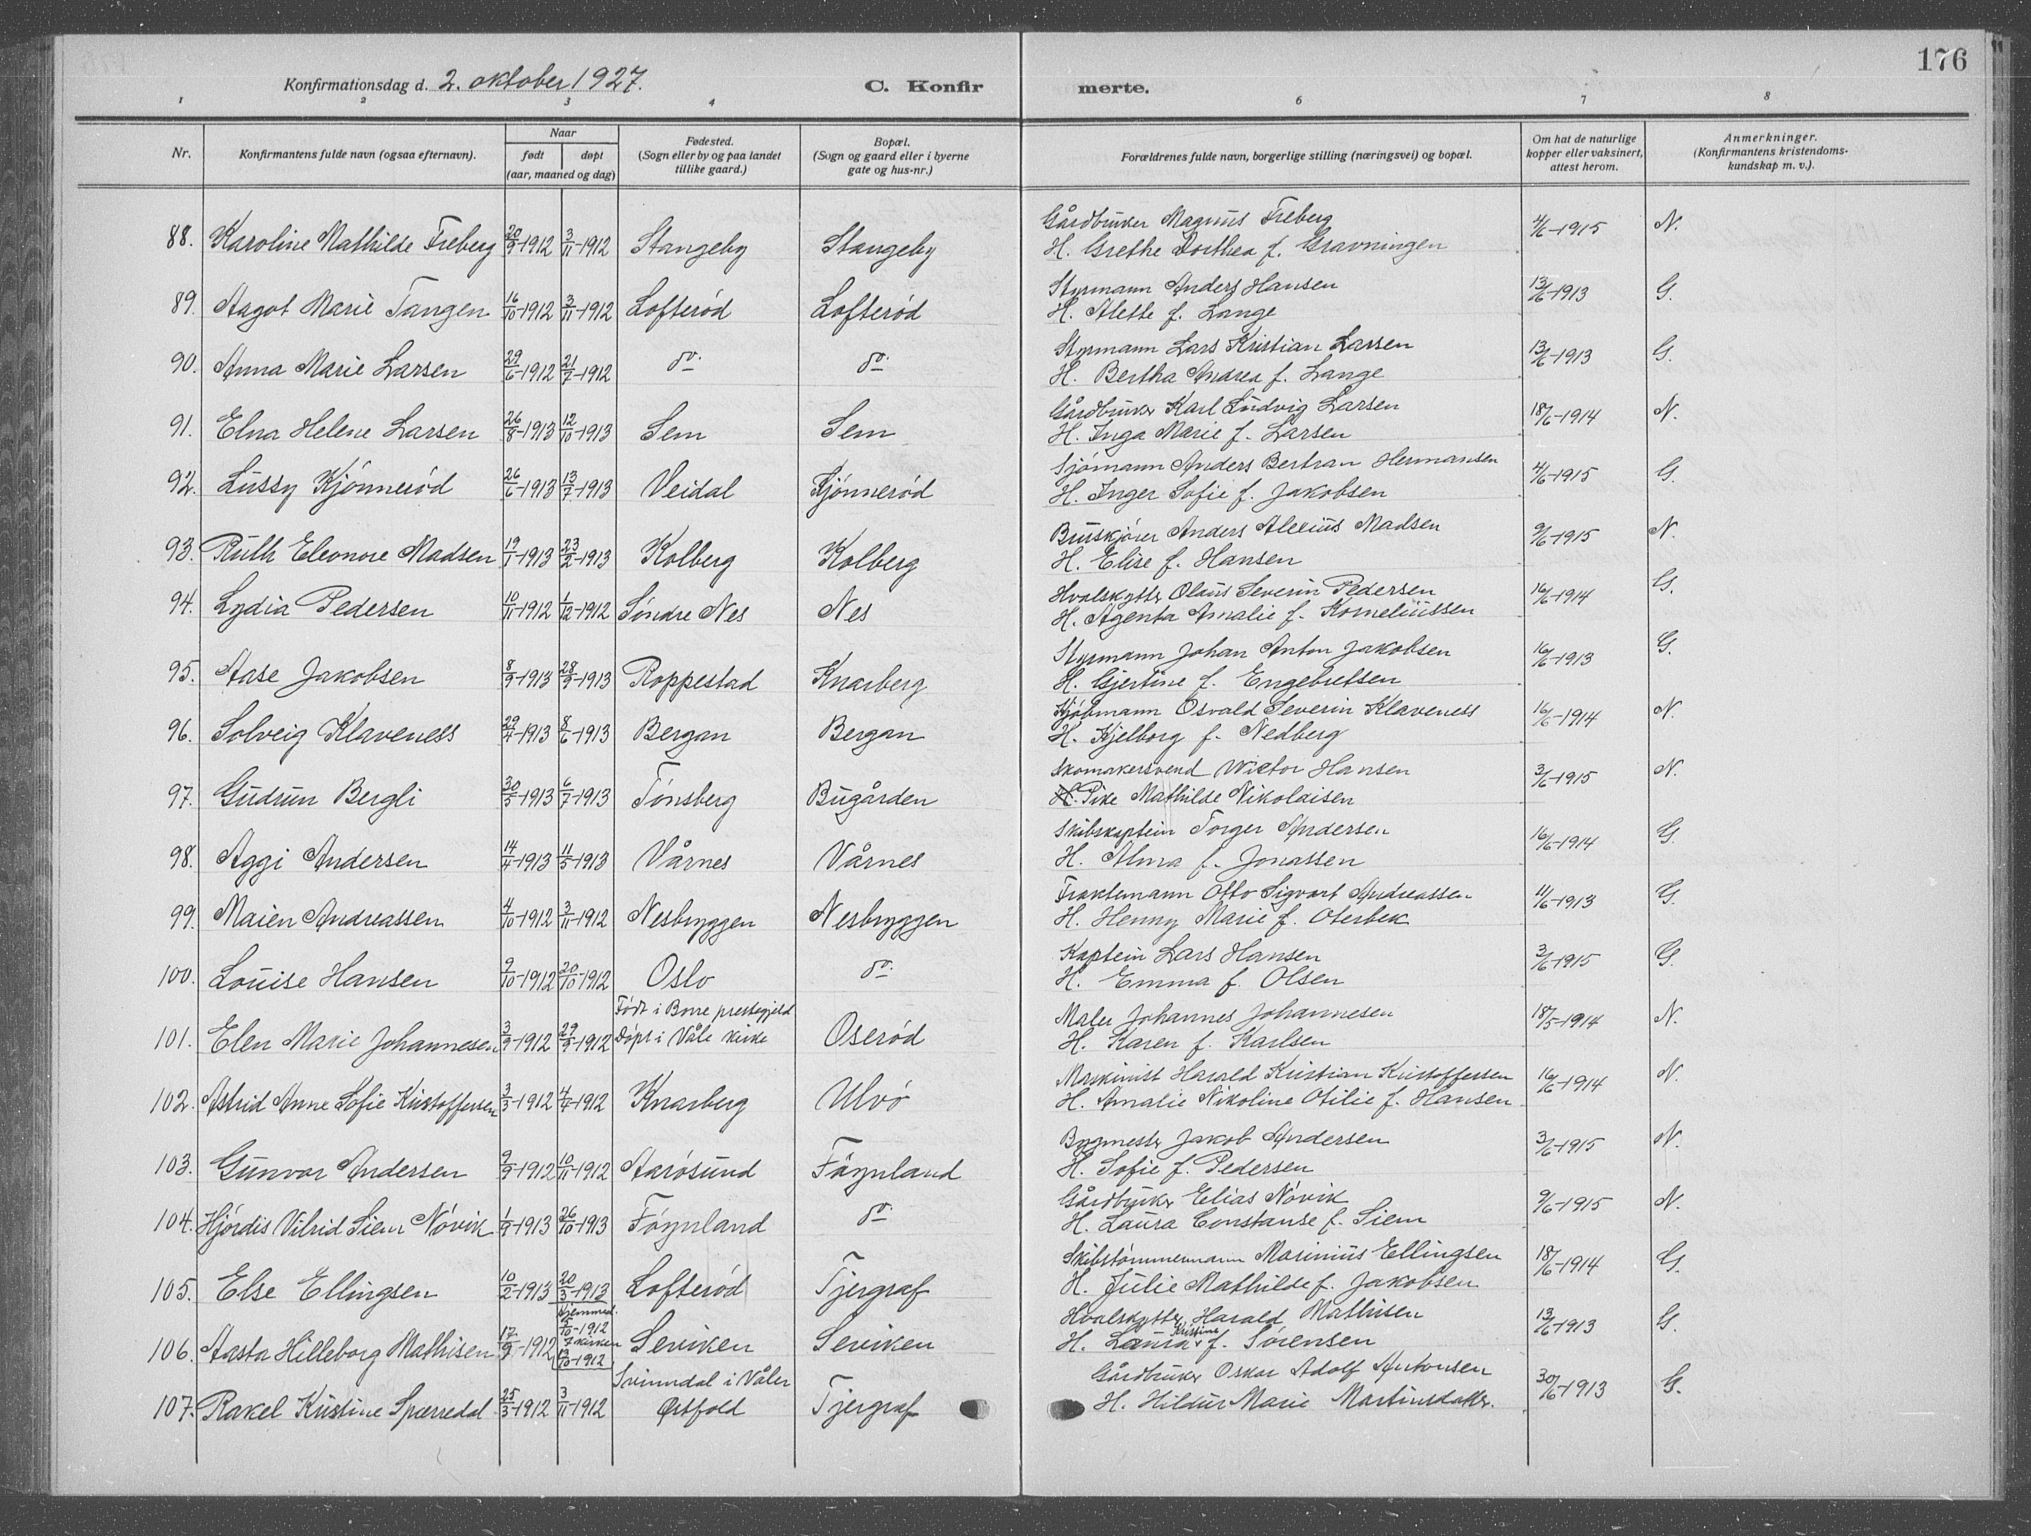 176
Konfirmationsdag d. 2. oktober 1927. C. Konfirmerte.
1 2 3 4 6 7 8
Nr. Konfirmantens fulde navn (ogsaa efternavn). Naar født døpt (aar, maaned og dag) Fødested. (Sogn eller by og paa landet tillike gaard.) Bopæl. (Sogn og gaard eller i byerne gate og hus-nr.) Forældrenes fulde navn, borgerlige stilling (næringsvei) og bopæl. Om hat de naturlige kopper eller vaksinert, attest herom. Anmerkninger. (Konfirmantens kristendoms-kundskap m. v.).
88. Karoline Mathilde Freberg 20/9-1912 3/11-1912 Stangeby Stangeby Gårdbruker Magnus Freberg 4/6-1915 N.
H. Grethe Dorthea f. Gravningen
89. Aagot Marie Tangen 16/10-1912 3/11-1912 Lofterød Lofterød Styrmann Anders Hansen 13/6-1913 G.
H. Alette f. Lange
90. Anna Marie Larsen 29/6-1912 21/7-1912 do. do. Styrmann Lars Kristian Larsen 13/6-1913 G.
H. Bertha Andrea f. Lange
91. Elna Helene Larsen 26/8-1913 12/10-1913 Sem Sem Gårdbruker Karl Ludvig Larsen 18/6-1914 N.
H. Inga Marie f. Larsen
92. Lussy Kjønnerød 26/6-1913 13/7-1913 Veidal Kjønnerød Sjømann Anders Bertran Hermansen 4/6-1915 G.
H. Inger Sofie f. Jakobsen
93. Ruth Eleonore Madsen 19/1-1913 23/2-1913 Kolberg Kolberg Buskjører Anders Alexius Madsen 9/6-1915 N.
H. Elise f. Hansen
94. Lydia Pedersen 10/11-1912 1/12-1912 Söndre Nes Nes Hvalskytter Olaus Severin Pedersen 16/6-1914 G.
H. Agenta Amalie f. Korneliussen
95. Aase Jakobsen 8/9-1913 28/9-1913 Roppestad Knarberg Styrmann Johan Anton Jakobsen 16/6-1913 G.
H. Gjertine f. Engebretsen
96. Solveig Klaveness 29/4-1913 8/6-1913 Bergan Bergan Kjøbmann Osvald Severin Klaveness 16/6-1914 N.
H. Kjelborg f. Nedberg
97. Gudrun Bergli 30/5-1913 6/7-1913 Tønsberg Bugården Skomakersvend Wictor Hansen 3/6-1915 N.
Pike Mathilde Nikolaisen
98. Aggi Andersen 14/4-1913 11/5-1913 Vårnes Vårnes Skibskaptein Torger Andersen 16/6-1914 G.
H. Alma f. Jonassen
99. Maien Andreassen 4/10-1912 3/11-1912 Nesbryggen Nesbryggen Fraktemann Otto Sigvart Andreassen 11/6-1913 G.
H. Henny Marie f. Oterbek
100. Louise Hansen 9/10-1912 20/10-1912 Oslo do. Kaptein Lars Hansen 3/6-1915 G.
H. Emma f. Olsen
101. Elen Marie Johannesen 3/9-1912 29/9-1912 Født i Borre prestegjeld Døpt i Våle kirke Oserød Maler Johannes Johannesen 18/5-1914 N.
H. Karen f. Karlsen
102. Astrid Anne Sofie Kristoffersen 3/3-1912 4/7-1912 Knarberg Ulvö Maskinist Harald Kristian Kristoffersen 16/6-1914 N.
H. Amalie Nikoline Otilie f. Hansen
103. Gunvor Andersen 9/9-1912 10/11-1912 Aarøsund Föynland Bygmester Jakob Andersen 3/6-1915 N.
H. Sofie f. Pedersen
104. Hjørdis Vilrid Siem Növik 1/9-1913 26/10-1913 Föynland do. Gårdbruker Elias Növik 9/6-1915 N.
H. Laura Constanse f. Siem
105. Else Ellingsen 10/2-1913 20/3-1913 Lofterød Tjergraf Skibstømmermann Marinius Ellingsen 18/6-1914 G.
H. Julie Mathilde f. Jakobsen
106. Aasta Hilleborg Mathisen 17/9-1912 Hjemmed. 5/10-1912 i kirken 13/10-1912 Serviken Serviken Hvalskytter Harald Mathisen 13/6-1913 G.
H. Laura Kristine f. Sørensen
107. Rakel Kristine Sparredal 25/3-1912 3/11-1912 Svinndal i Våler Østfold Tjergraf Gårdbruker Oskar Adolf Antonsen 30/6-1913 G.
H. Hildur Marie Martinsdatter.